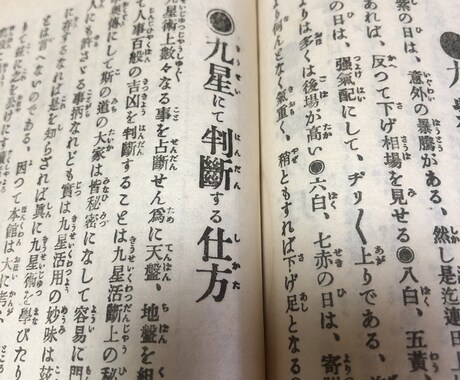 紫の日は、意外の暴騰がある、然し是迄連日
あれば、反つて下げ相場を見せる●八白、五黄、
の日は、強氣配にして、ヂリ〳〵上りである、
よりは多くは後場が高い●六白、七赤の日は、寄
より何となく氣重く、稍ともすれば下げ足となるの
●九星にて判斷する仕方
九星術上數々なる事を占斷せん爲に天盤、地盤を組
て人事百般の吉凶を判斷することは九星活斷上の秘
奥にして斯の道の大家は皆秘密になして容易に門
人にも許さゞる事柄なれども實は九星活用の妙味は茲
に存するなれば是を知らざれば眞に九星術を學びたり
とは言へないのである、因つて本館は大に考